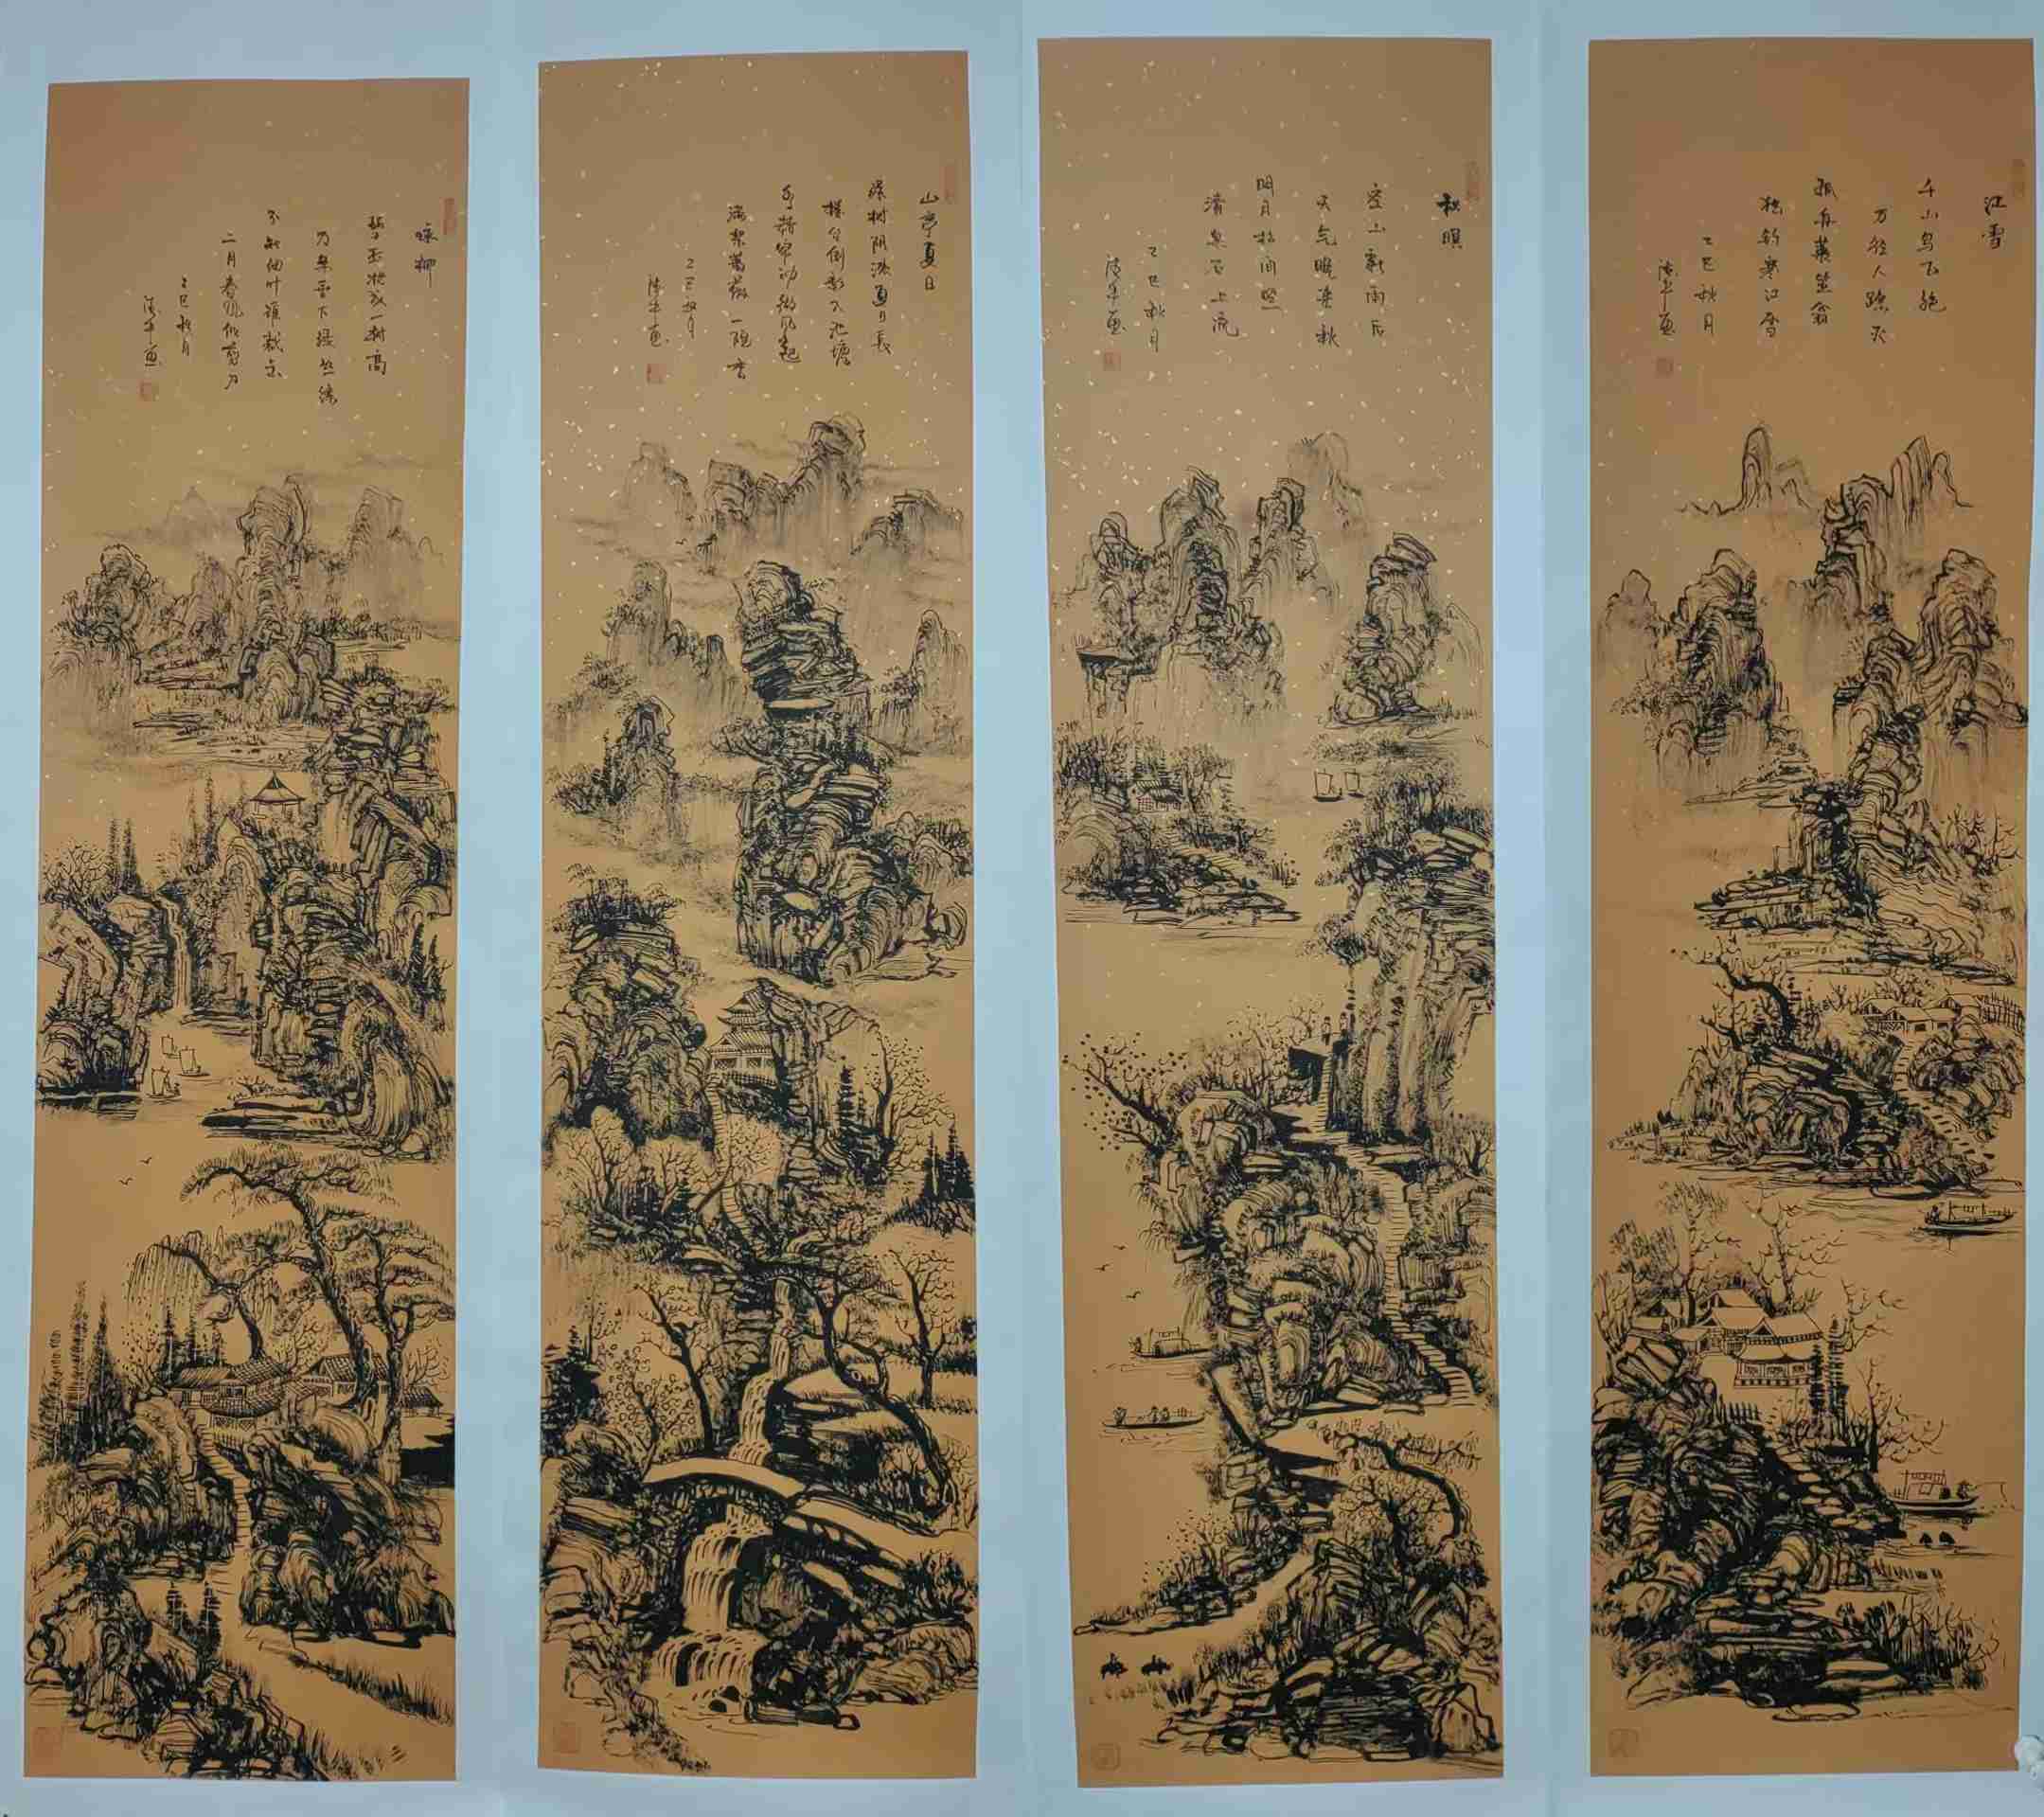 咏柳
碧玉妆成一树高
万条垂下绿丝绦
不知细叶谁裁出
二月春风似剪刀
乙巳秋月
平画
山亭夏日
绿树阴浓夏日长
楼台倒影入池塘
水精帘动微风起
满架蔷薇一院香
乙巳秋月
平画
秋暝
空山新雨后
天气晚来秋
明月松间照
清泉石上流
乙巳秋月
平画
江雪
千山鸟飞绝
万径人踪灭
孤舟蓑笠翁
独钓寒江雪
乙巳秋月
平画